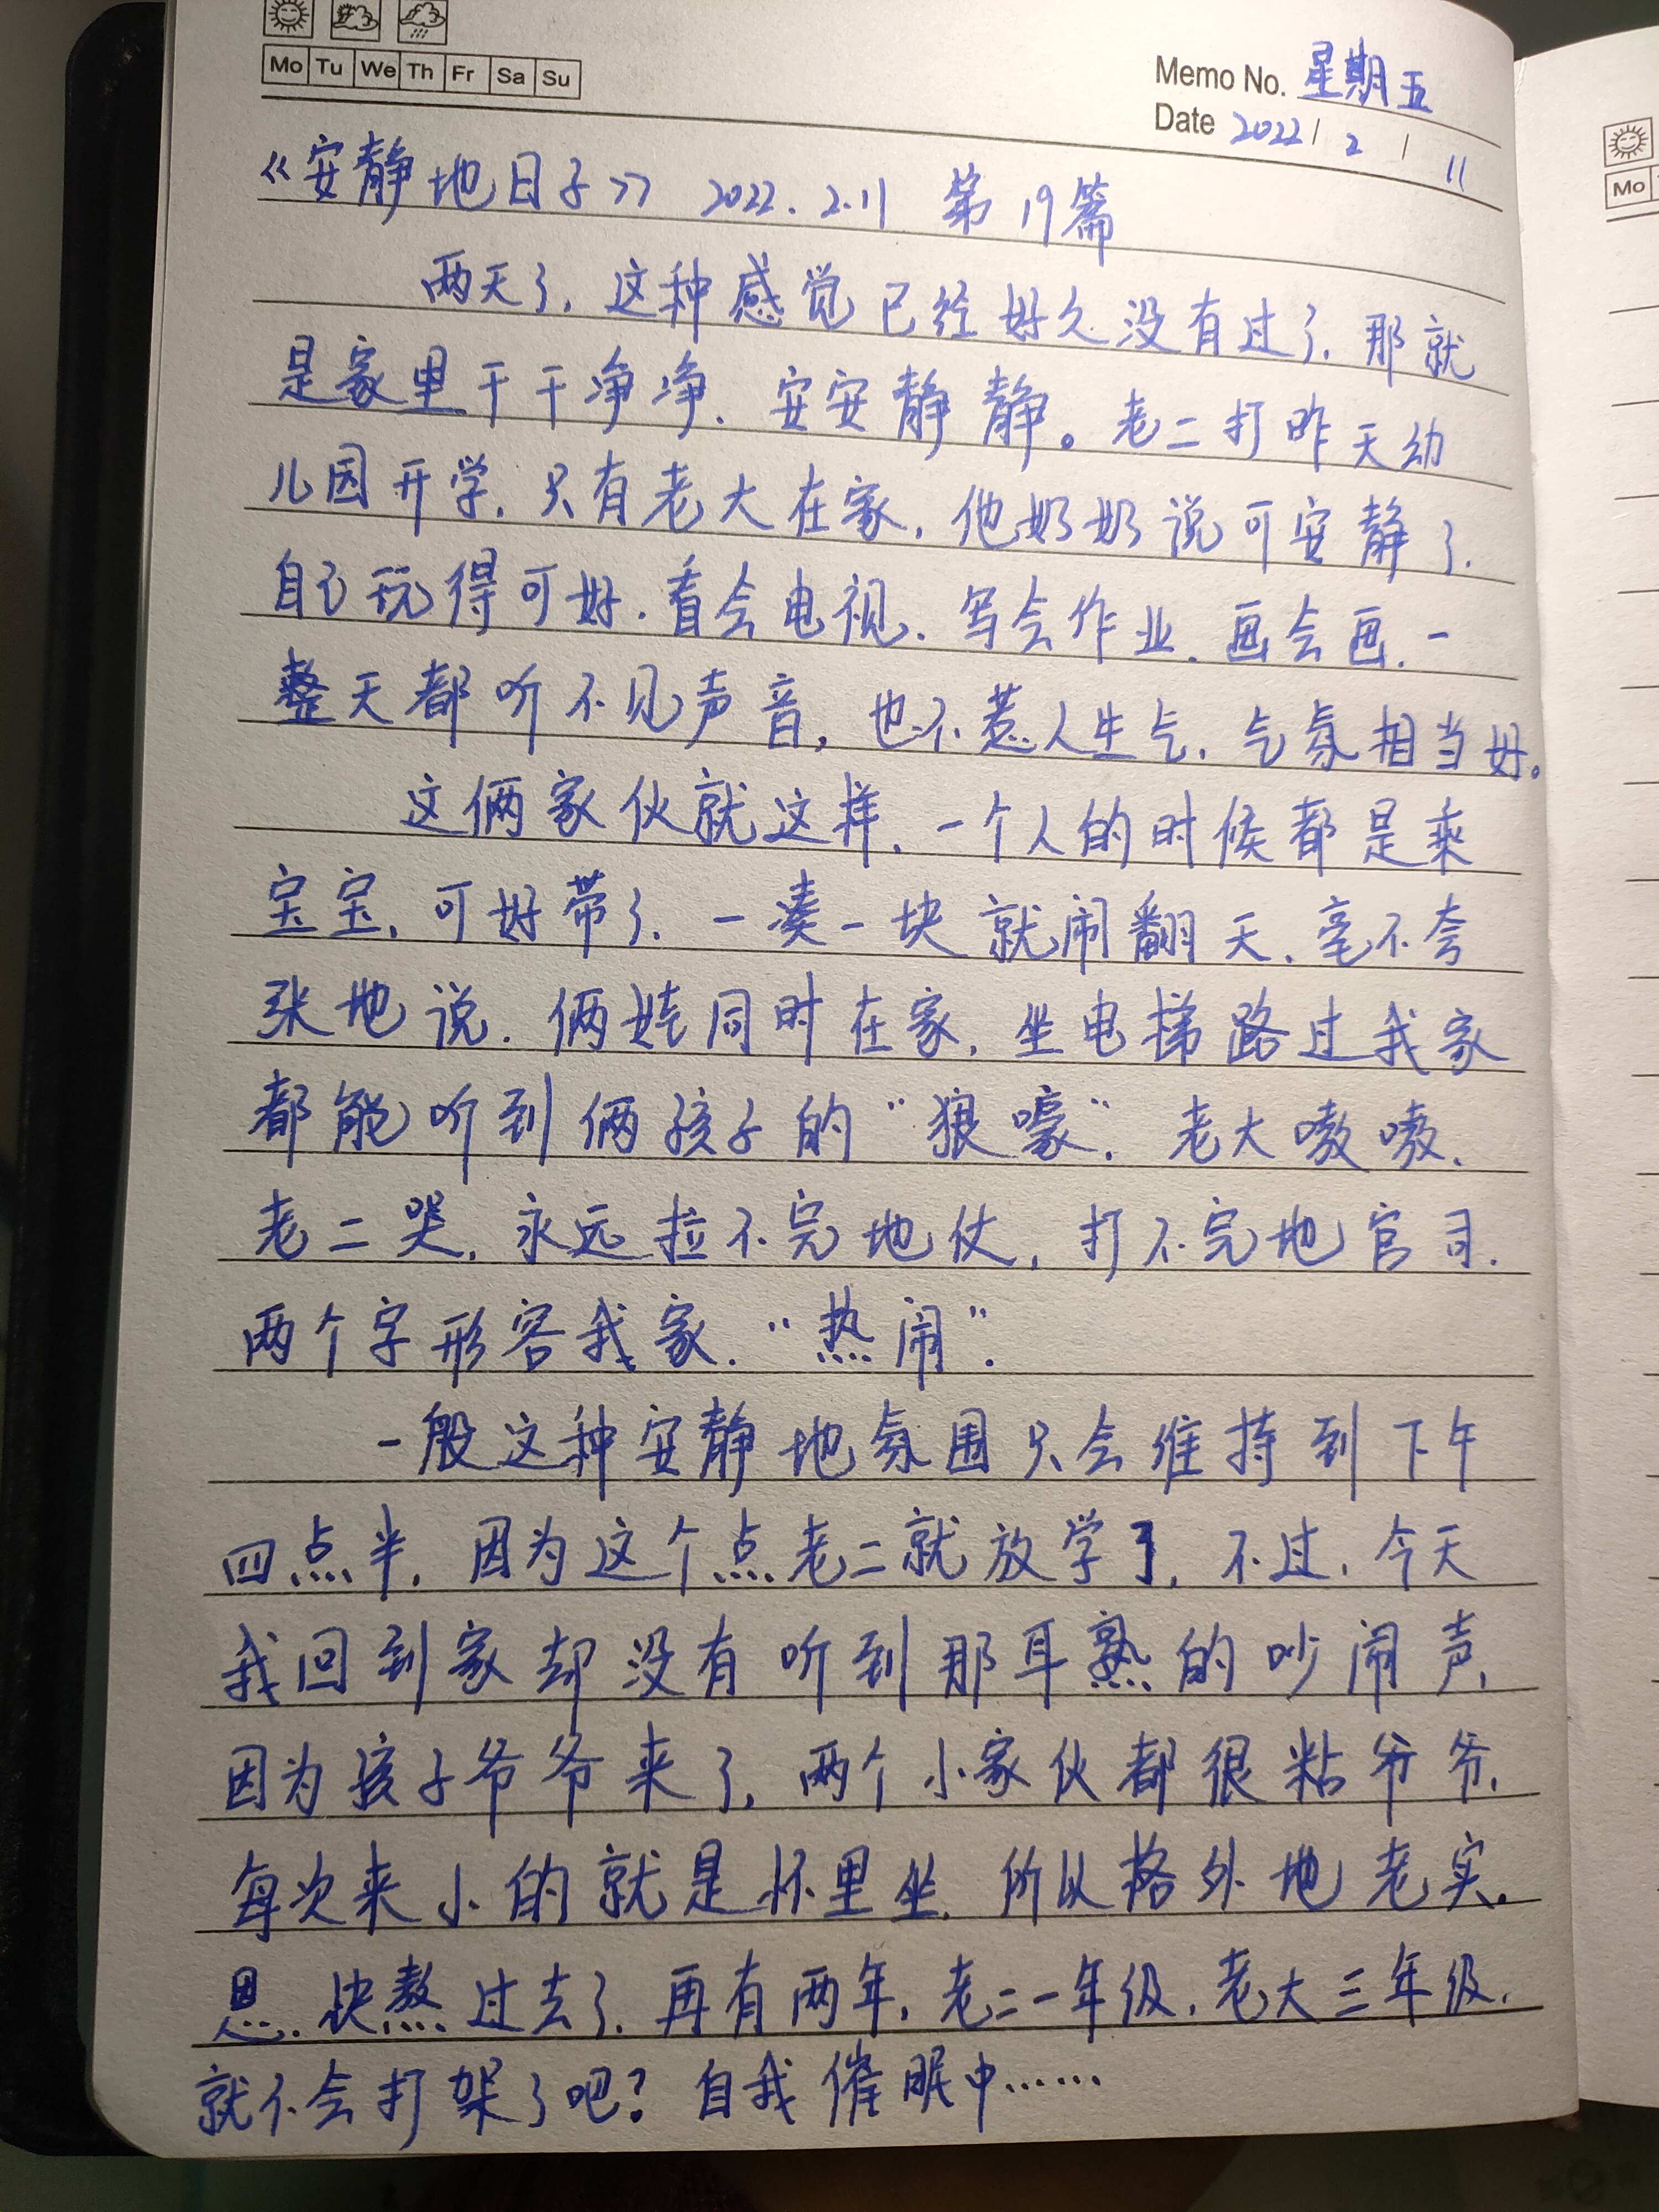 Mo Tu We Th Fr Sa Su
Memo No. 星期五
Date 2022 / 2 / 11
《安静地日子》 2022.2.11 第19篇
两天了,这种感觉已经好久没有过了,那就
是家里干干净净、安安静静。老二打昨天幼
儿园开学,只有老大在家,他奶奶说可安静了,
自己玩得可好,看会电视、写会作业、画会画,一
整天都听不见声音,也不惹人生气,气氛相当好。
这俩家伙就这样,一个人的时候都是乘
宝宝,可好带了,一凑一块就闹翻天,毫不夸
张地说,俩娃同时在家,坐电梯路过我家
都能听到俩孩子的“狼嚎”,老大嗷嗷,
老二哭,永远拉不完地仗,打不完地官司.
两个字形容我家,“热闹”.
一般这种安静地氛围只会维持到下午
四点半,因为这个点老二就放学了,不过,今天
我回到家却没有听到那耳熟的吵闹声,
因为孩子爷爷来了,两个小家伙都很粘爷爷,
每次来小的就是怀里坐,所以格外地老实.
恩,快熬过去了,再有两年,老二一年级,老大三年级,
就不会打架了吧?自我催眠中……
Mo